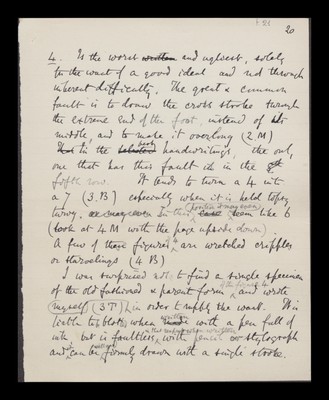 20
4. Is the worst written and ugliest, solely
for the want of a good ideal and not through
inherent difficulty. The great & common
fault is to draw the cross stroke through
the extreme end of the foot, instead of its
middle, and to make it overlong (2 M)
In the selected best handwritings, the only
one that has this fault is in the
fifth row. It tends to turn a 4 into
a 7 (3. B) especially when it is held topsy
turvy. in this position it may even seem like 6
(look at 4 M with the page upside down).
A few of these figures 4 are wretched cripples
or starvelings (4 B)
I was surprised not to find a single specimen
of the old fashioned & parent form of the figure 4, and wrote
(myself) (3 T) in order to supply the want. It is
liable to blots when written made with a pen full of
ink, but is faultless when written with pencil or stylograph
and can be firmly drawn with a single stroke.